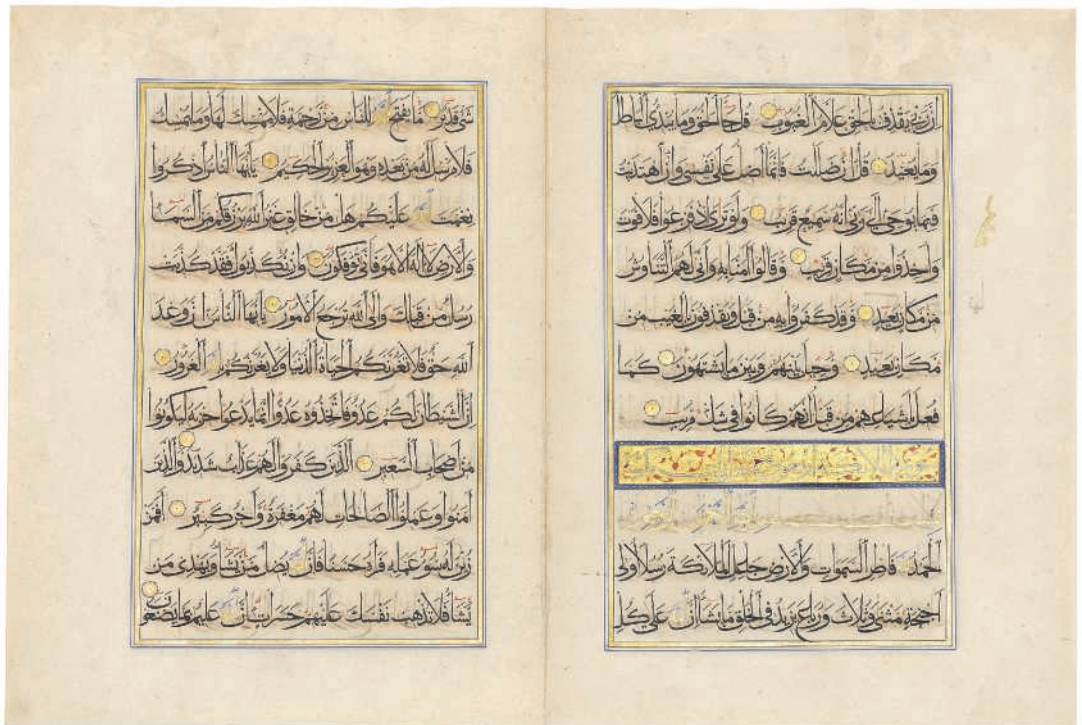 إن ربي يقذف بالحق علام الغيوب قل جاء الحق وما يبدئ الباطل
وما يعيد قل إن ضللت فإنما أضل على نفسي وإن اهتديت
فبما يوحي إلي ربي إنه سميع قريب ولو ترى إذ فزعوا فلا فوت
وأخذوا من مكان قريب وقالوا آمنا به وأنى لهم التناوش
من مكان بعيد وقد كفروا به من قبل ويقذفون بالغيب من
مكان بعيد وحيل بينهم وبين ما يشتهون كما
فعل بأشياعهم من قبل إنهم كانوا في شك مريب
بسم الله الرحمن الرحيم
الحمد لله فاطر السموات والأرض جاعل الملائكة رسلا أولي
أجنحة مثنى وثلاث ورباع يزيد في الخلق ما يشاء إن الله على كل
شيء قدير ما يفتح الله للناس من رحمة فلا ممسك لها وما يمسك
فلا مرسل له من بعده وهو العزيز الحكيم يا أيها الناس اذكروا
نعمت الله عليكم هل من خالق غير الله يرزقكم من السماء
والأرض لا إله إلا هو فأنى تؤفكون وإن يكذبوك فقد كذبت
رسل من قبلك وإلى الله ترجع الأمور يا أيها الناس إن وعد
الله حق فلا تغرنكم الحياة الدنيا ولا يغرنكم بالله الغرور
إن الشيطان لكم عدو فاتخذوه عدوا إنما يدعو حزبه ليكونوا
من أصحاب السعير الذين كفروا لهم عذاب شديد والذين
آمنوا وعملوا الصالحات لهم مغفرة وأجر كبير أفمن
زين له سوء عمله فرآه حسنا فإن الله يضل من يشاء ويهدي من
يشاء فلا تذهب نفسك عليهم حسرات إن الله عليم بما يصنعون